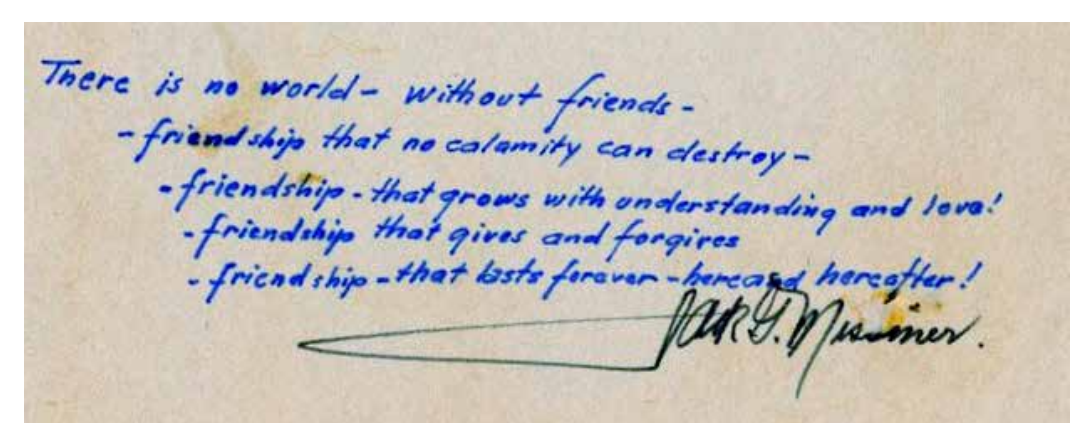 There is no world - without friends -
- friendship that no calamity can destroy -
- friendship - that grows with understanding and love!
- friendship that gives and forgives
- friendship - that lasts forever - here and hereafter!
Jack G. Missimer.